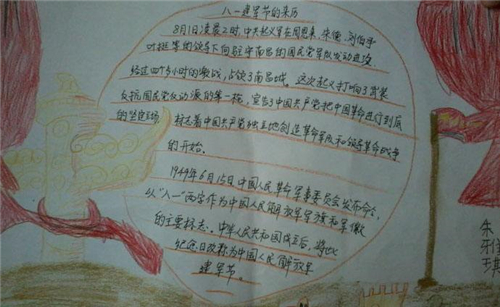 八一建军节的来历
8月1日凌晨2时,中共起义军在周恩来、朱德、刘伯承
叶挺等的领导下向驻守南昌的国民党军队发动进攻
经过四个多小时的激战,占领了南昌城。这次起义打响了武装
反抗国民党反动派的第一枪,宣告了中国共产党把中国革命进行到底
的坚定立场。标志着中国共产党独立地创造革命军队和领导革命战争
的开始。
1949年6月15日中国人民革命军事委员会发布命令:
以"八一"两字作为中国人民解放军军旗和军徽
的主要标志。中华人民共和国成立后,将此
纪念日改称为中国人民解放军
建军节。
朱
琪